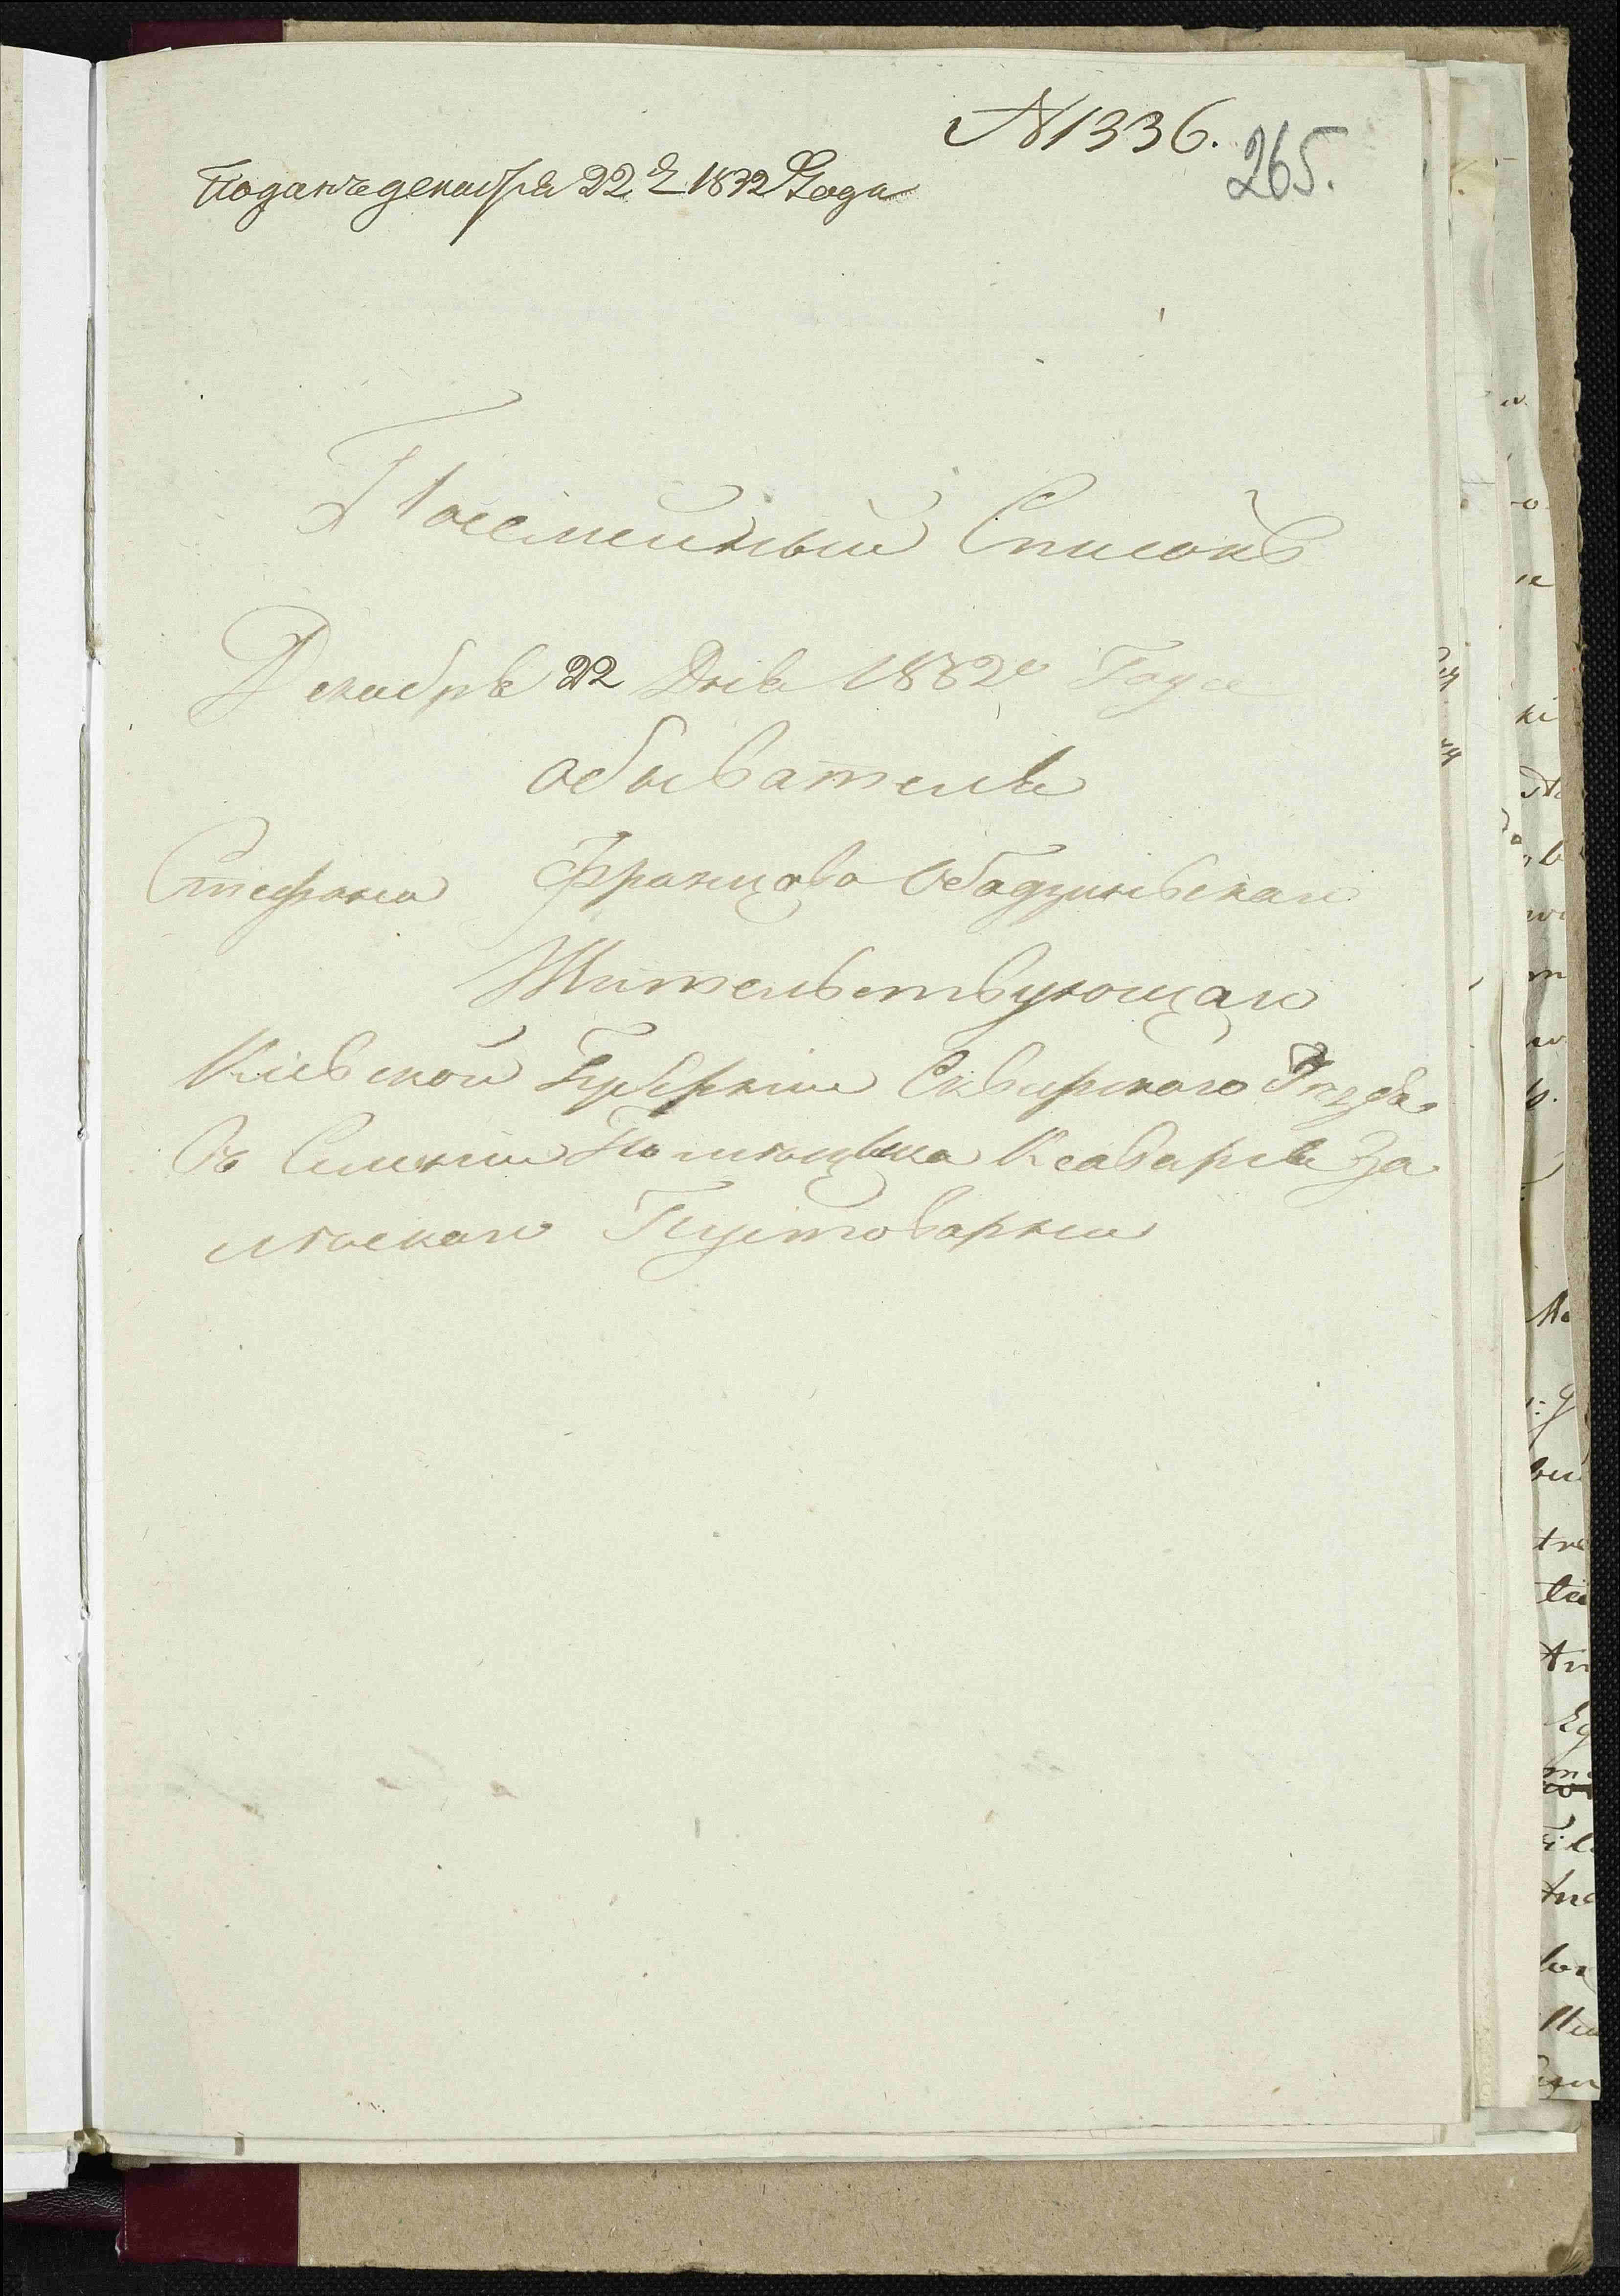 N 1336.
265.
Поданъ декабря 22 д 1832 Года
Посемейный Списокъ
Декабря 22 Дня 1832го Года
обывателя
Стефана Францова Обадзинскаго
Жительствующаго
Кіевской Губерніи Сквирского Уезда
Въ Селении Помещика Ксаверія За
лескаго Пустоварни